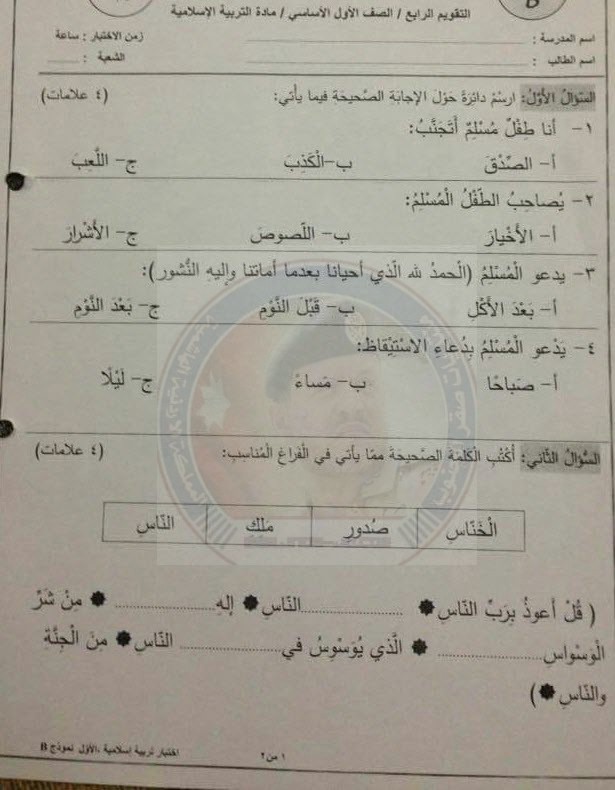 B
التقويم الرابع / الصف الأول الأساسي / مادة التربية الإسلامية
اسم المدرسة : زمن الاختبار : ساعة
اسم الطالب : الشعبة :
السّؤالُ الأوّلُ: ارسُمْ دائِرَةً حَوْلَ الإجابَةِ الصَّحيحَةِ فيما يأتي: (٤ علامات)
١- أنا طِفْلٌ مُسْلِمٌ أَتَجَنَّبُ:
أ- الصِّدْقَ ب-الْكَذِبَ ج- اللَّعِبَ
٢- يُصاحِبُ الطِّفْلُ الْمُسْلِمُ:
أ- الأَخْيارَ ب- اللّصوصَ ج- الأَشْرارَ
٣- يدعو الْمُسْلِمُ (الْحمدُ لله الّذي أحيانا بعدما أماتنا وإليهِ النُّشور):
أ- بَعْدَ الأَكْلِ ب- قَبْلَ النَّوْمِ ج- بَعْدَ النَّوْمِ
٤- يَدْعو الْمُسْلِمُ بِدُعاءِ الاسْتيْقاظ:
أ- صَباحًا ب- مَساءً ج- لَيْلًا
السُّؤالُ الثّاني: أُكْتُبِ الْكَلِمَةَ الصَّحيحَةَ ممّا يأتي في الْفَراغِ الْمُناسِبِ: (٤ علامات)
الْخَنّاسِ صُدور مَلِك النّاسِ
( قُلْ أعوذُ بِرَبِّ النّاسِ ..................النّاسِ إلهِ.................. مِنْ شَرِّ
الْوَسْواسِ.................. الَّذي يُوَسْوِسُ في.................. النّاسِ مِنَ الْجِنَّةِ
والنّاسِ )
١ من ٢ اختبار تربية إسلامية ،الأول نموذج B